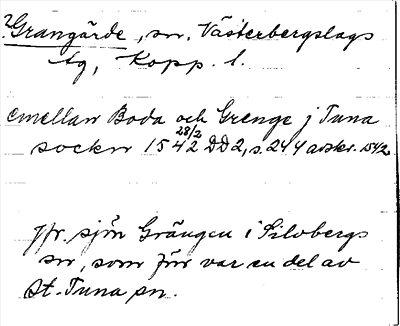 ?Grangärde, sn, Västerbergslags
tg, Kopp. l.
emellan Boda och Grenge j Tuna
sockn 1542 28/2 DD2, s. 244 avskr. 1542
Jfr. sjön Grängen i Silvbergs
sn, som förr var en del av
St. Tuna sn.